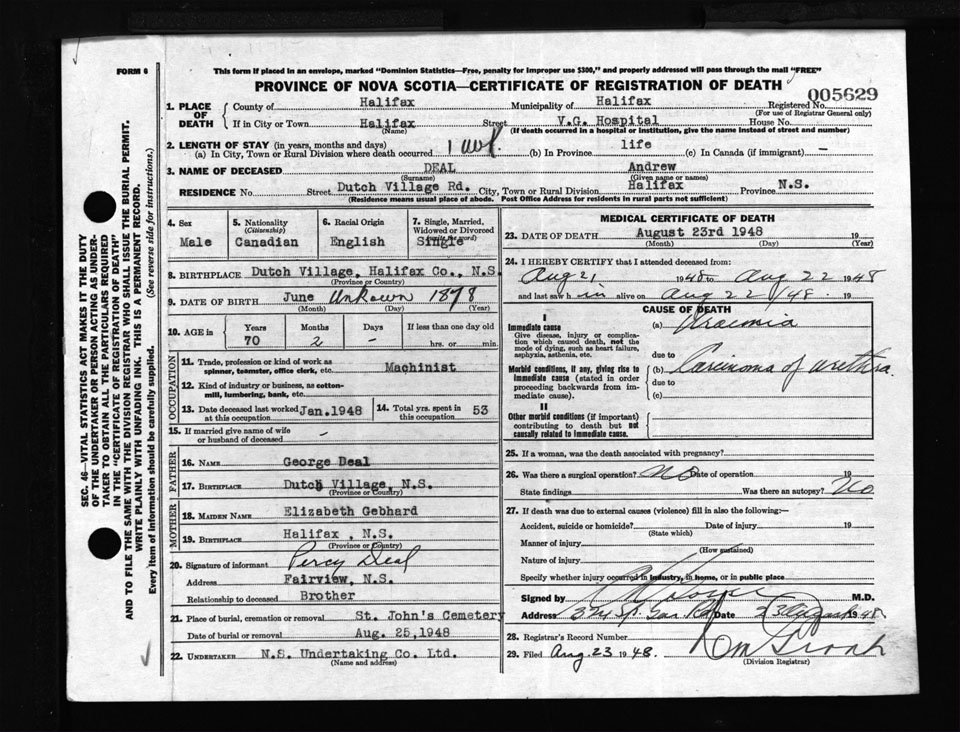 FORM 6
This form if placed in an envelope, marked "Dominion Statistics—Free, penalty for improper use $300," and properly addressed will pass through the mail "FREE"
PROVINCE OF NOVA SCOTIA—CERTIFICATE OF REGISTRATION OF DEATH
005629
1. PLACE OF DEATH County of Halifax Municipality of Halifax Registered No.
(For use of Registrar General only)
If in City or Town Halifax Street V.G. Hospital House No.
(Name) (If death occurred in a hospital or institution, give the name instead of street and number)
2. LENGTH OF STAY (in years, months and days)
(a) In City, Town or Rural Division where death occurred 1 (b) In Province life (c) In Canada (if immigrant) —
3. NAME OF DECEASED DEAL Andrew
(Surname) (Given name or names)
RESIDENCE No. Street Dutch Village Rd. City, Town or Rural Division Halifax Province N.S.
(Residence means usual place of abode. Post Office Address for residents in rural parts not sufficient)
4. Sex Male
5. Nationality (Citizenship) Canadian
6. Racial Origin English
7. Single, Married, Widowed or Divorced (write the word) Single
8. BIRTHPLACE Dutch Village, Halifax Co., N.S.
(Province or Country)
9. DATE OF BIRTH June Unkown 1878
(Month) (Day) (Year)
10. AGE in Years Months Days If less than one day old
70 2 - hrs. or min.
OCCUPATION
11. Trade, profession or kind of work as spinner, teamster, office clerk, etc. Machinist
12. Kind of industry or business, as cotton-mill, lumbering, bank, etc.
13. Date deceased last worked at this occupation Jan.1948
14. Total yrs. spent in this occupation 53
15. If married give name of wife or husband of deceased -
FATHER
16. NAME George Deal
17. BIRTHPLACE Dutch Village, N.S.
(Province or Country)
MOTHER
18. MAIDEN NAME Elizabeth Gebhard
19. BIRTHPLACE Halifax , N.S.
(Province or Country)
20. Signature of informant Percy Deal
Address Fairview, N.S.
Relationship to deceased Brother
21. Place of burial, cremation or removal St. John's Cemetery
Date of burial or removal Aug. 25,1948
22. UNDERTAKER N.S. Undertaking Co. Ltd.
(Name and address)
MEDICAL CERTIFICATE OF DEATH
23. DATE OF DEATH August 23rd 1948 19
(Month) (Day) (Year)
24. I HEREBY CERTIFY that I attended deceased from:
Aug 21 1948 to Aug 22 1948
and last saw him alive on Aug 22 /48 19
CAUSE OF DEATH
I
Immediate cause
Give disease, injury or complication which caused death, not the mode of dying, such as heart failure, asphyxia, asthenia, etc.
(a) Uraemia
due to
Morbid conditions, if any, giving rise to immediate cause (stated in order proceeding backwards from immediate cause).
(b) Carcinoma of urethra.
due to
(c)
II
Other morbid conditions (if important) contributing to death but not causally related to immediate cause.
25. If a woman, was the death associated with pregnancy?
26. Was there a surgical operation? No Date of operation 19
State findings Was there an autopsy? No
27. If death was due to external causes (violence) fill in also the following:—
Accident, suicide or homicide? Date of injury 19
(State which)
Manner of injury
(How sustained)
Nature of injury
Specify whether injury occurred in industry, in home, or in public place
Signed by M.D.
Address Date 23 1948.
28. Registrar's Record Number
29. Filed Aug. 23 1948.
(Division Registrar)
SEC. 46—VITAL STATISTICS ACT MAKES IT THE DUTY
OF THE UNDERTAKER OR PERSON ACTING AS UNDERTAKER
TO OBTAIN ALL THE PARTICULARS REQUIRED
IN THE "CERTIFICATE OF REGISTRATION OF DEATH"
AND TO FILE THE SAME WITH THE DIVISION REGISTRAR WHO SHALL ISSUE THE BURIAL PERMIT.
WRITE PLAINLY WITH UNFADING INK. THIS IS A PERMANENT RECORD.
Every item of information should be carefully supplied. (See reverse side for instructions.)